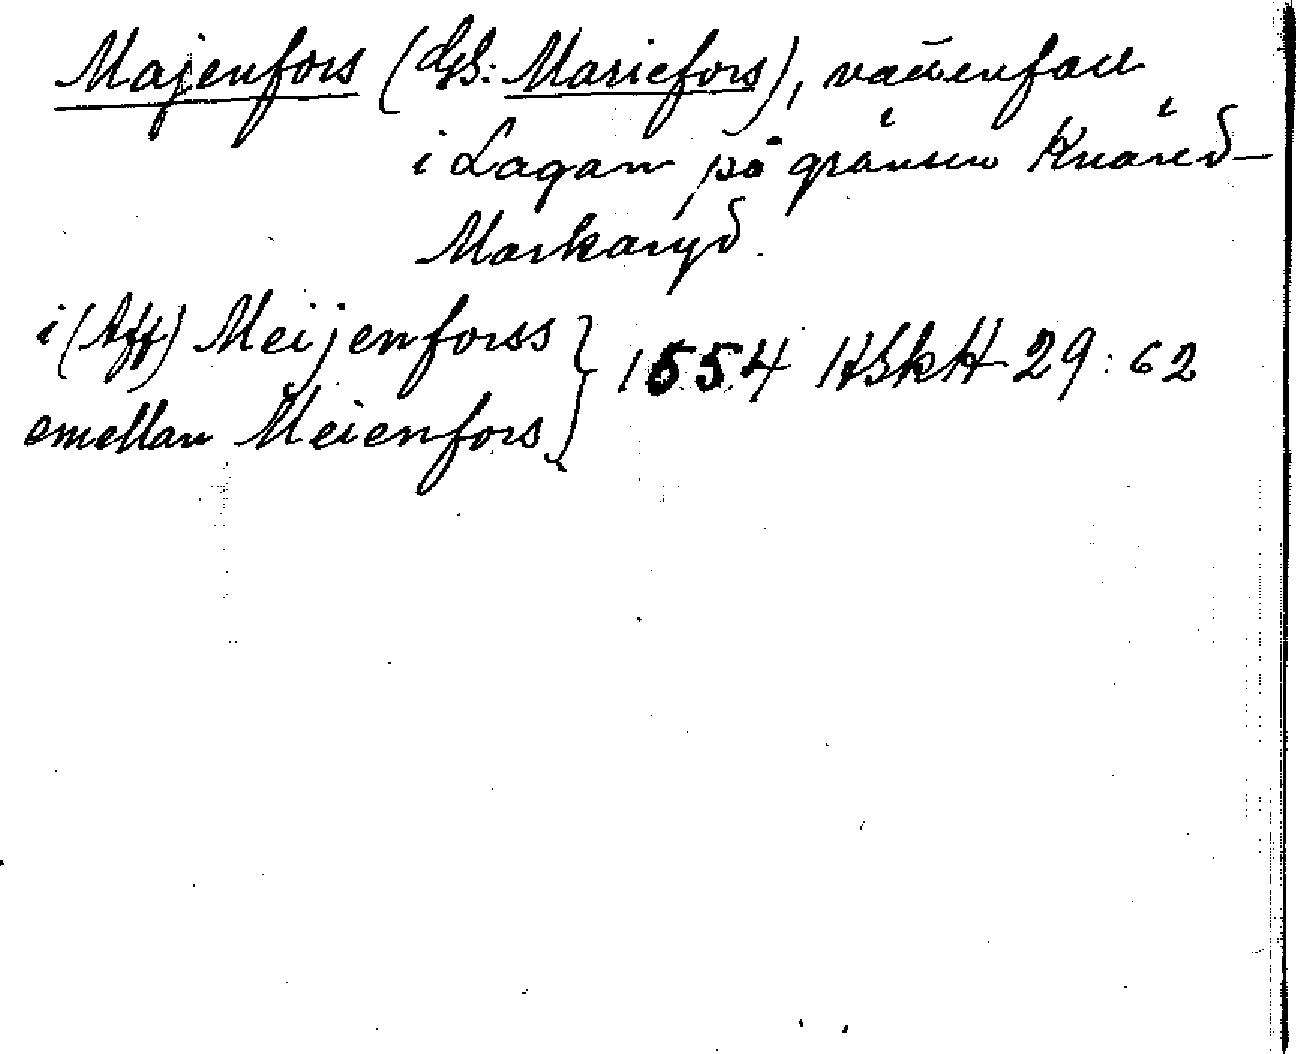 Majenfors (GS: Mariefors), vattenfall
i Lagan på gränsen Knäred-
Markaryd.
i (Aff) Meijenforss } 1554 HSkH 29:62
emellan Meienfors